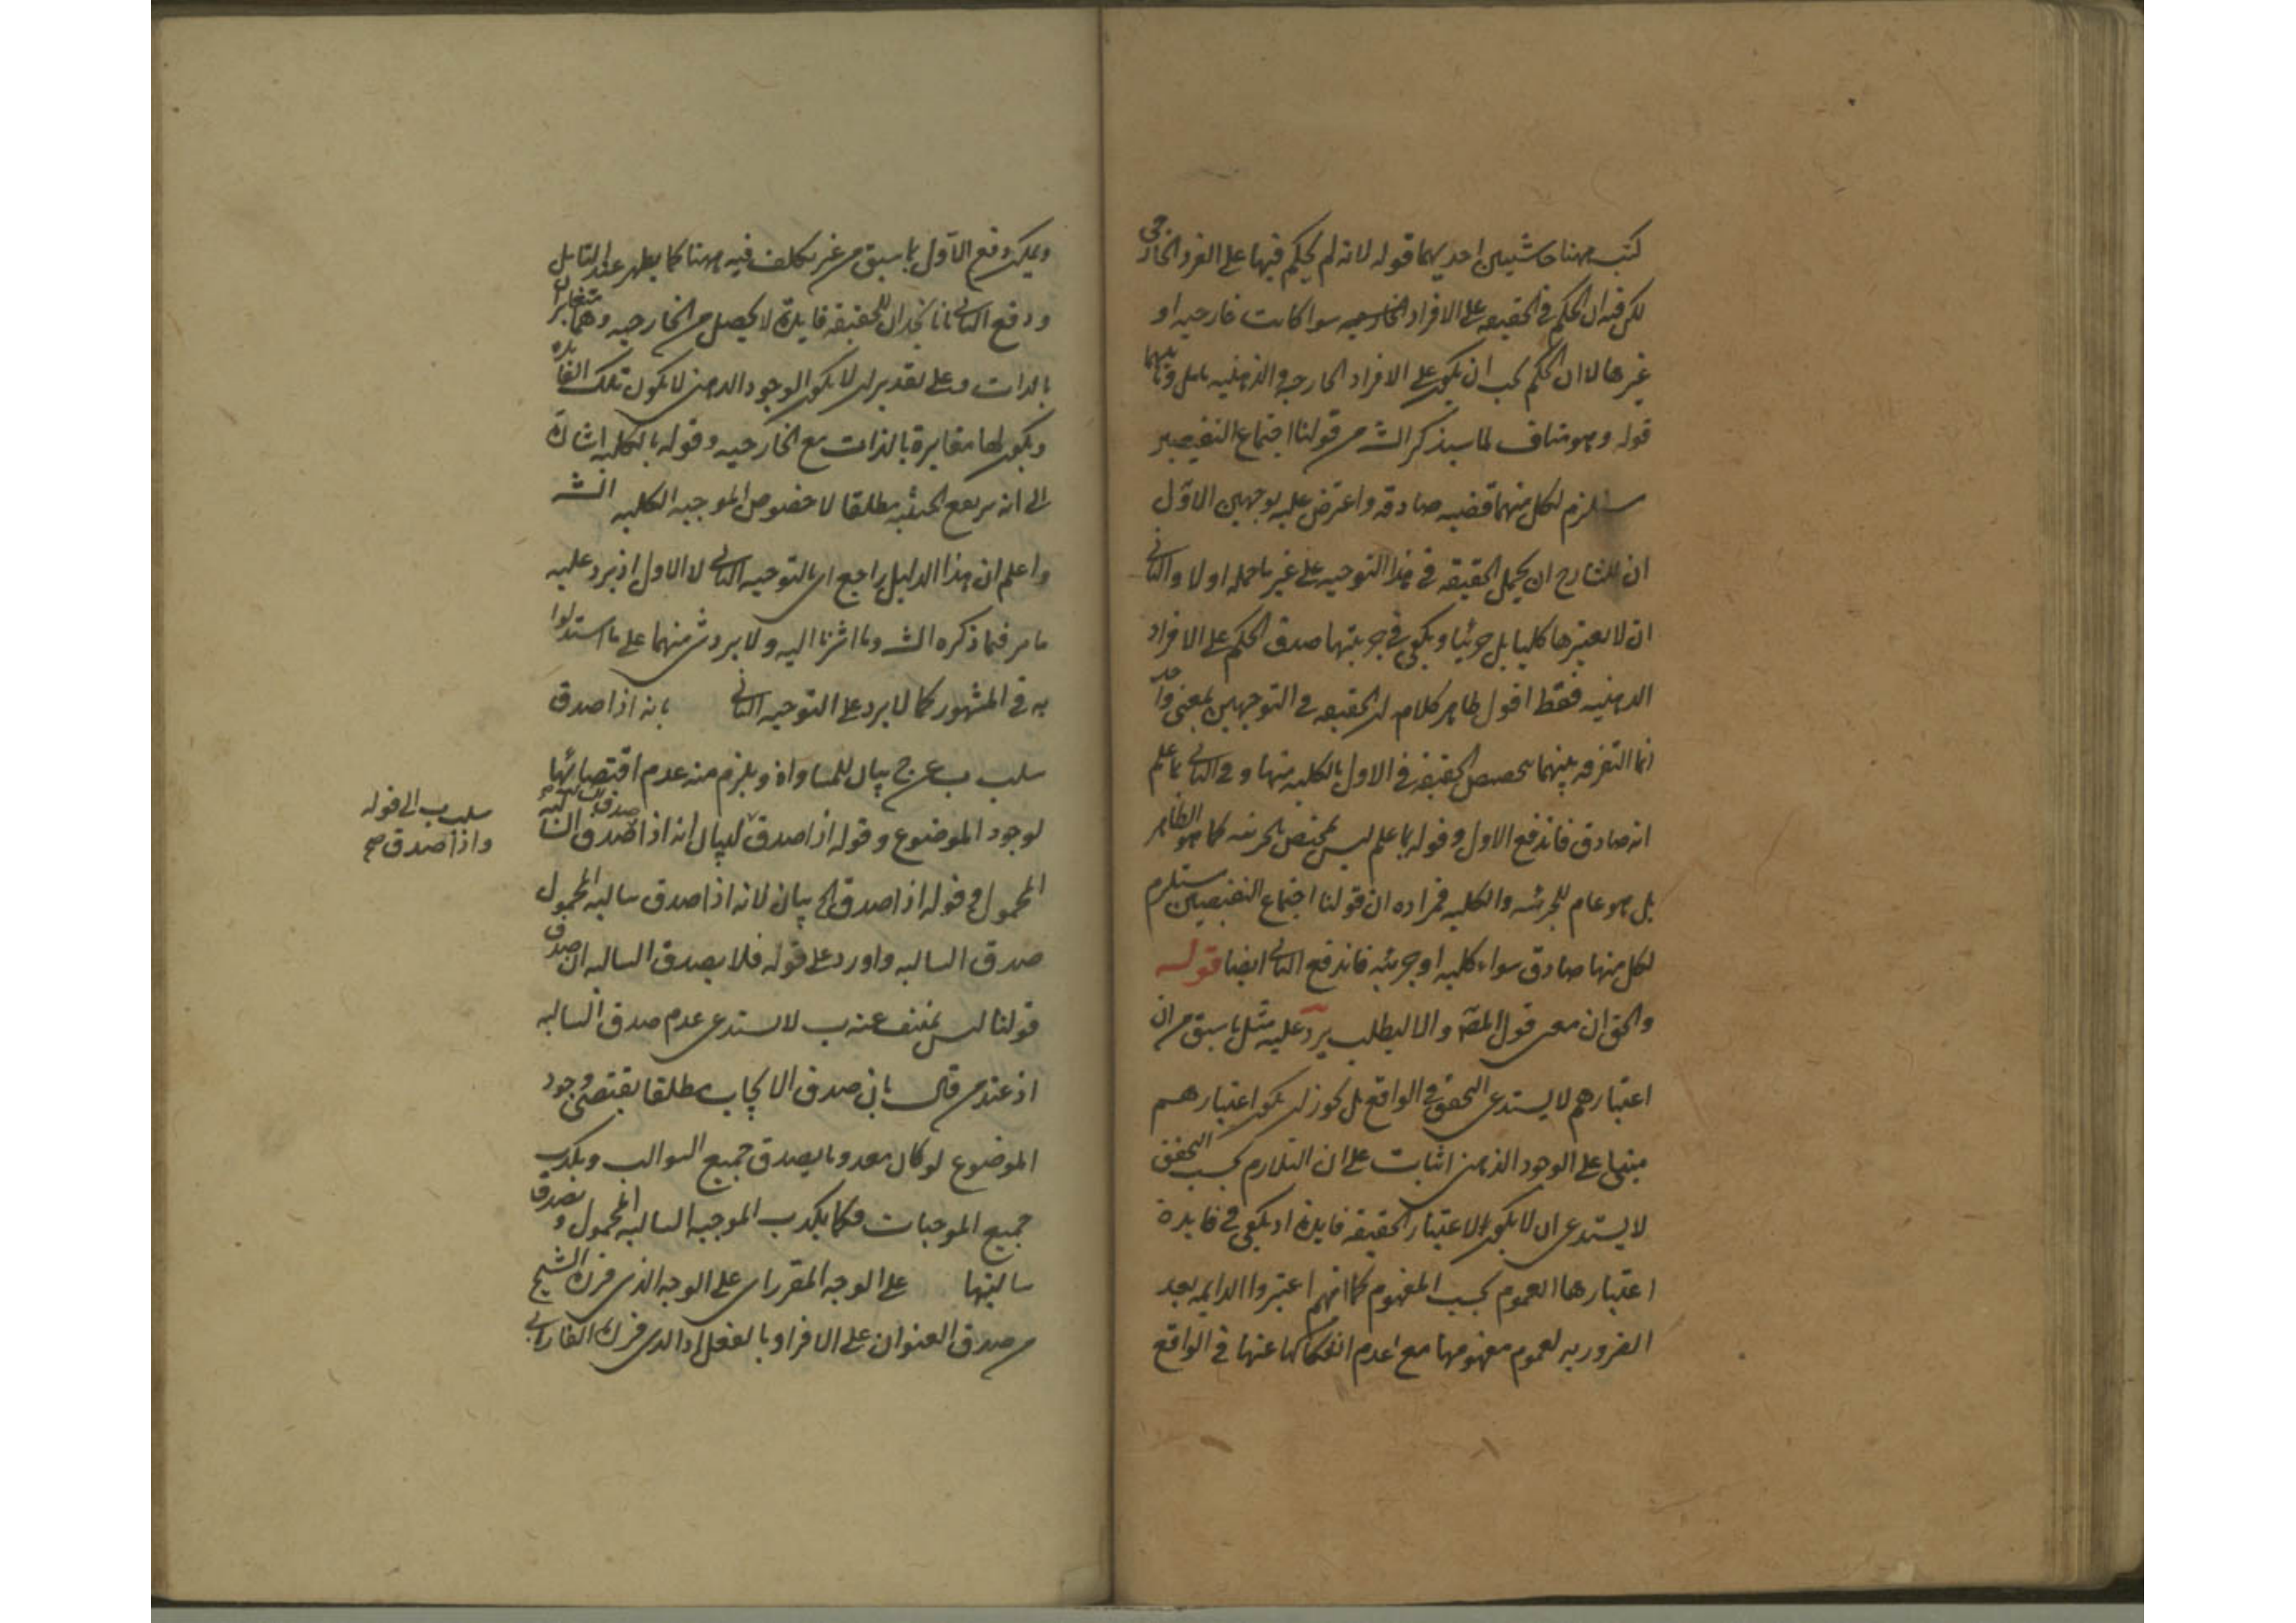 كتب ههنا حاشيتين احديهما قوله لانه لم يحكم فيها على الفرد الخارجى
لكن فيه ان الحكم في الحقيقيه على الافراد الخارجيه سوا كانت خارجيه او
غيرها لا ان الحكم يجب ان يكون على الافراد الخارجيه والذهنيه تامل وثانيهما
قوله وهو مناف لما سيذكر الش من قولنا اجتماع النقيضين
مستلزم لكل منهما قضيه صادقه واعترض عليه بوجهين الاول
ان للشارح ان يحمل الحقيقيه في هذا التوجيه على غير ما حمله اولا والثانى
ان لا يعتبرها كليا بل جزئيا ويكفى في جزئيتها صدق الحكم على الافراد
الذهنيه فقط اقول ظاهر كلامه ان الحقيقيه في التوجيهين بمعنى واحد
انما التفرقه بينهما بتخصيص الحقيقيه في الاول بالكليه منها وفي الثانى بما علم
انه صادق فاندفع الاول وقوله بما علم ليس بمختص بالجزئيه كما هو الظاهر
بل هو عام للجزئيه والكليه فمراده ان قولنا اجتماع النقيضين مستلزم
لكل منها صادق سواء كليه او جزئيه فاندفع الثانى ايضا قوله
والحق ان معنى قول المص والا لبطلب يرد عليه مثل ما سبق من ان
اعتبارهم لا يستدعى التحقق في الواقع بل يجوز ان يكون اعتبارهم
مبنيا على الوجود الذهنى اثبات على ان التلازم بحسب التحقق
لا يستدعى ان لا يكون لاعتبار الحقيقيه فايدة اذ يكفى في فايدة
اعتبارها العموم بحسب المفهوم كما انهم اعتبروا الدايمه بعد
الضروريه لعموم مفهومها مع عدم انفكاكها عنها في الواقع
ويمكن دفع الاول بما سبق من غير تكلف فيه ههنا كما يظهر عند التامل
ودفع الثانى بانا نجد ان للحقيقيه فايدة لا يحصل من الخارجيه وهما متغايران
بالذات وعلى تقدير ان لا يكون الوجود الذهنى لا يكون تلك الفايده
ويكون لها مغايرة بالذات مع الخارجيه وقوله بالكليه اشارة
الى انه يرتفع الحقيقيه مطلقا لا خصوص الموجبه الكليه الش
واعلم ان هذا الدليل راجع الى التوجيه الثانى لا الاول اذ يرد عليه
ما مر فما ذكره الش وما اشرنا اليه ولا يرد شى منهما على ما استدلوا
به في المشهور كما لا يرد على التوجيه الثانى بانه اذا صدق
سلب ب عن ج بيان للمساواة ويلزم منه عدم اقتضائها
لوجود الموضوع وقوله اذا صدق لبيان انه اذا صدق السالبه صدق السالبة
المحمول وقوله اذا صدق الخ بيان لانه اذا صدق سالبه المحمول
صدق السالبه واورد على قوله فلا يصدق السالبه ان صدق
قولنا ليس بمنتف عنه ب لا يستدعى عدم صدق السالبه
اذ عند من قال بان صدق الايجاب مطلقا يقتضى وجود
الموضوع لو كان معدوما يصدق جميع السوالب ويكذب
جميع الموجبات فكما يكذب الموجبه السالبه المحمول ويصدق
سالبتها على الوجه المقرر اى على الوجه الذى قرره الشيخ
من صدق العنوان على الافراد بالفعل او الذى قرره الفارابى
سلب ب الى قوله
واذا صدق صح